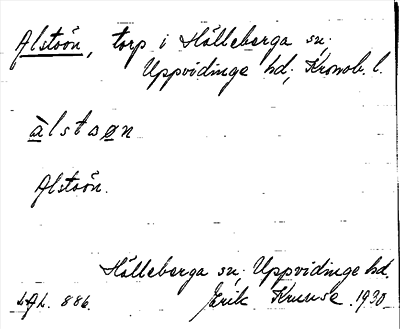 Alstoön, torp i Hälleberga sn;
Uppvidinge hd; Kronob. l.
àlstoøn
Alstoön.
Hälleberga sn; Uppvidinge hd.
LAL. 886. Erik Kruuse. 1930